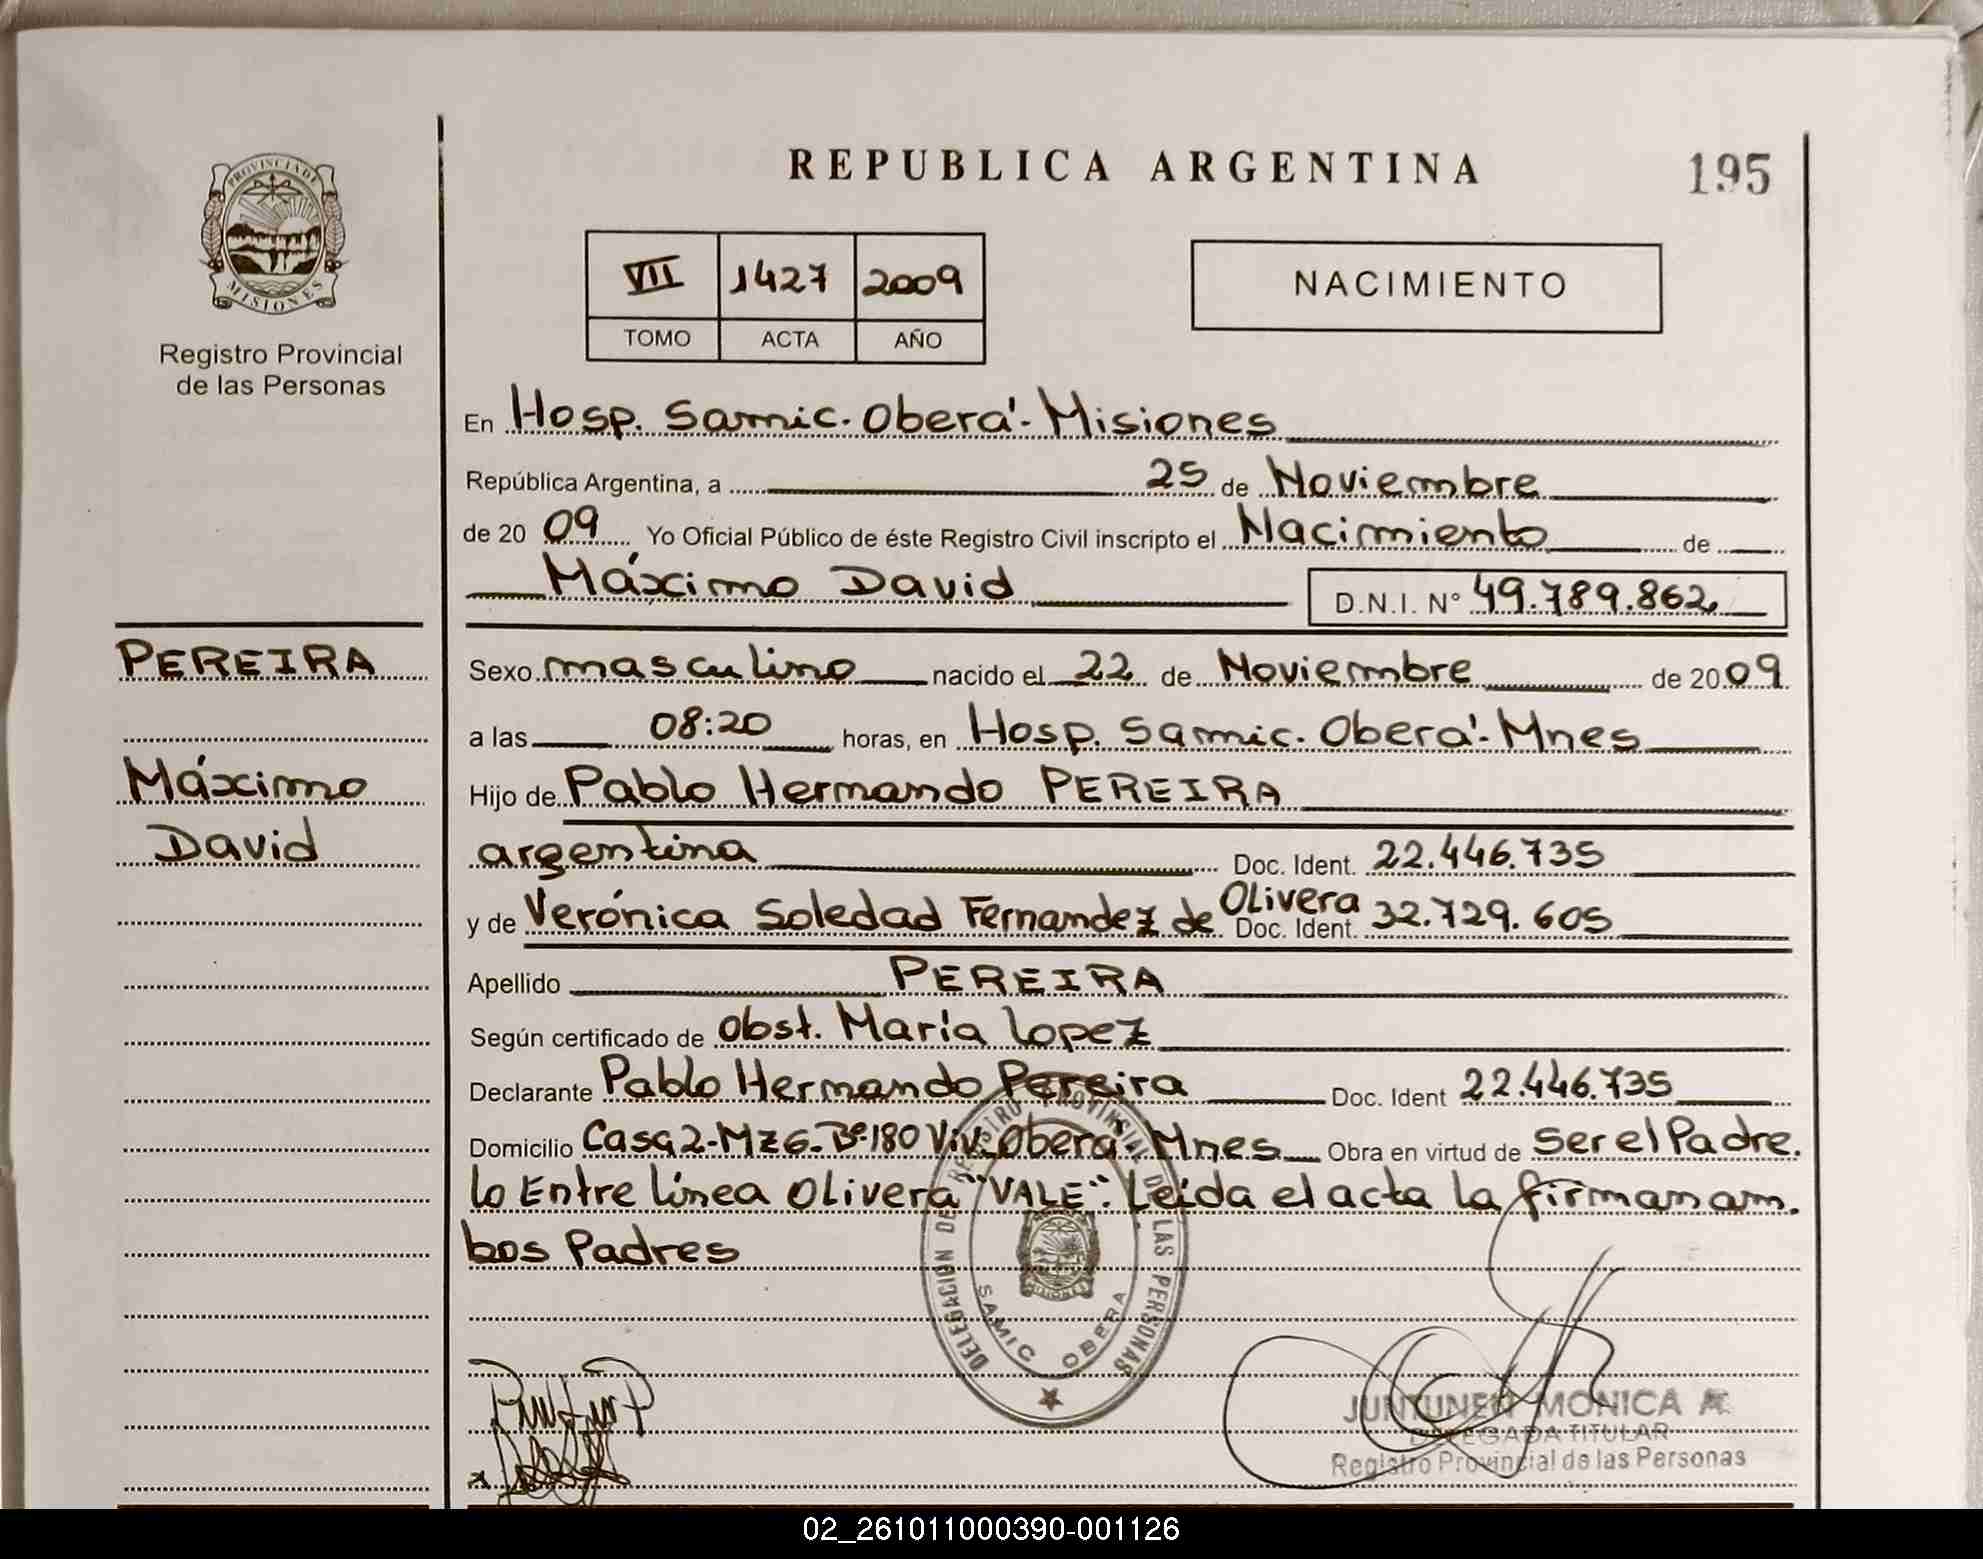 REPUBLICA ARGENTINA
195
PROVINCIA DE
MISIONES
Registro Provincial
de las Personas
VII 1427 2009
TOMO ACTA AÑO
NACIMIENTO
En Hosp. Samic. Oberá - Misiones
República Argentina, a 25 de Noviembre
de 20 09 Yo Oficial Público de éste Registro Civil inscripto el Nacimiento de
Máximo David
D.N.I. N° 49.789.862
PEREIRA
Máximo
David
Sexo masculino nacido el 22 de Noviembre de 20 09
a las 08:20 horas, en Hosp. Samic. Oberá - Mnes
Hijo de Pablo Hernando PEREIRA
argentina Doc. Ident. 22.446.735
y de Verónica Soledad Fernandez de Olivera Doc. Ident. 32.729.605
Apellido PEREIRA
Según certificado de Obst. María Lopez
Declarante Pablo Hernando Pereira Doc. Ident 22.446.735
Domicilio Casa 2-Mz 6-Bº 180 Viv. Oberá - Mnes Obra en virtud de ser el Padre.
lo Entre línea Olivera "VALE". Leída el acta la firman am-
bos Padres
DELEGACION DE REGISTRO PROVINCIAL DE LAS PERSONAS
SAMIC OBERA
JUNTUNEN MONICA A.
DELEGADA TITULAR
Registro Provincial de las Personas
02_261011000390-001126